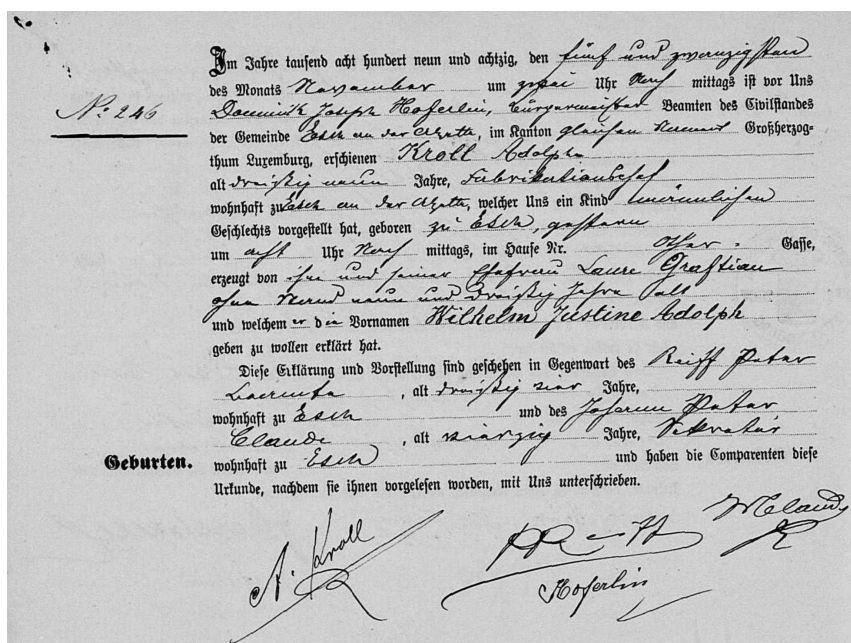 Im Jahre tausend acht hundert neun und achtzig, den fünf und zwanzigsten
des Monats November um zwei Uhr Nach mittags ist vor Uns
No 246
Dominik Joseph Hoferlin, Bürgermeister Beamten des Civilstandes
der Gemeinde Esch an der Alzette, im Kanton gleichen Namens Großherzog-
thum Luxemburg, erschienen Kroll Adolph
alt dreißig neun Jahre, Fabrikationschef
wohnhaft zu Esch an der Alzette, welcher Uns ein Kind männlichen
Geschlechts vorgestellt hat, geboren zu Esch, gestern
um acht Uhr Nach mittags, im Hause Nr. Gasse,
erzeugt von ihm und seiner Ehefrau Laure
ohne Stand neun und dreißig Jahre alt
und welchem er die Vornamen Wilhelm Justine Adolph
geben zu wollen erklärt hat.
Diese Erklärung und Vorstellung sind geschehen in Gegenwart des Reiff Peter
Beamte, alt dreißig vier Jahre,
wohnhaft zu Esch und des Johann Peter
Claude, alt vierzig Jahre, Sekretär
Geburten.
wohnhaft zu Esch und haben die Comparenten diese
Urkunde, nachdem sie ihnen vorgelesen worden, mit Uns unterschrieben.
A. Kroll
Hoferlin